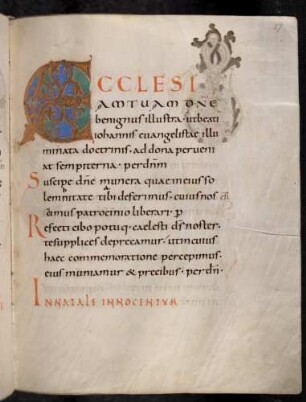 ECCLESI
AM TUAM DNE
benignus illustra · ut beati
iohannis euangelistae illu
minata doctrinis · ad dona perueni
at sempiterna · per dnm
Suscipe dne munera quae in eius so
lemnitate tibi deferimus · cuius nos
semus patrocinio liberari · p
Refecti cibo potuq · caelesti ds noster ·
te supplices deprecamur · ut in cuius
haec commemoratione percepimus ·
eius muniamur & precibus · per dnm ·
IN NATALE INNOCENTUM